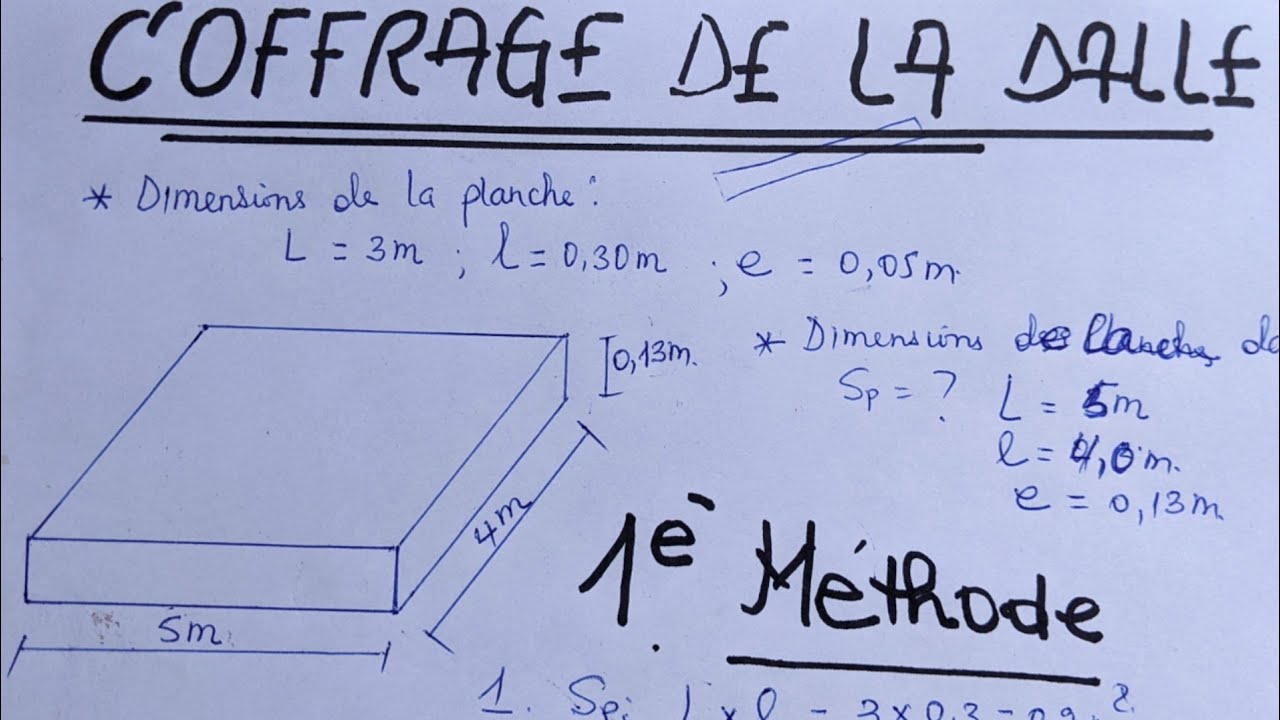 COFFRAGE DE LA DALLE
* Dimensions de la planche :
L = 3m ; l = 0,30m ; e = 0,05m.
0,13m.
* Dimensions de
Sp = ? L = 5m
l = 4,0m.
e = 0,13m.
4m
5m
1è Méthode
1. Sp: L x l = 3 x 0,3 =